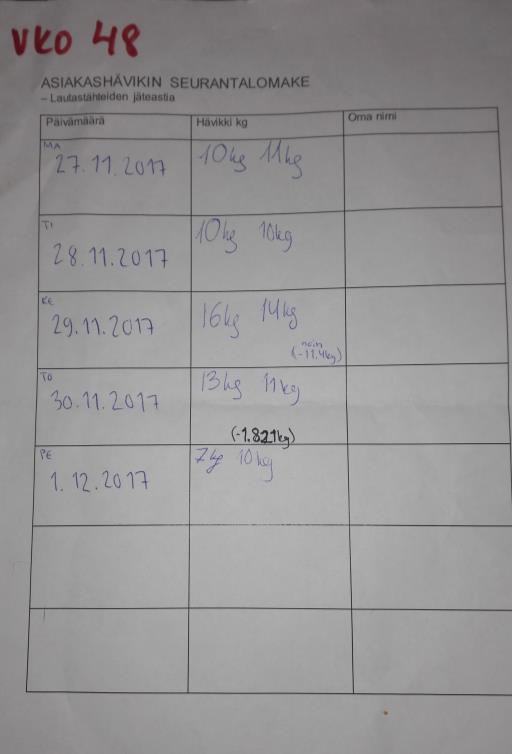 VKO 48
ASIAKASHÄVIKIN SEURANTALOMAKE
– Lautastähteiden jäteastia
Päivämäärä Hävikki kg Oma nimi
MA
27.11.2017 10kg 11kg
TI
28.11.2017 10kg 10kg
KE
29.11.2017 16kg 14kg
noin
(-11,4kg)
TO
30.11.2017 13kg 11kg
(-1.821kg)
PE
1.12.2017 7kg 10kg